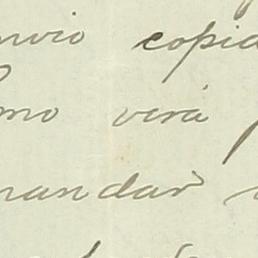 nvio copia
omo verá
mandar